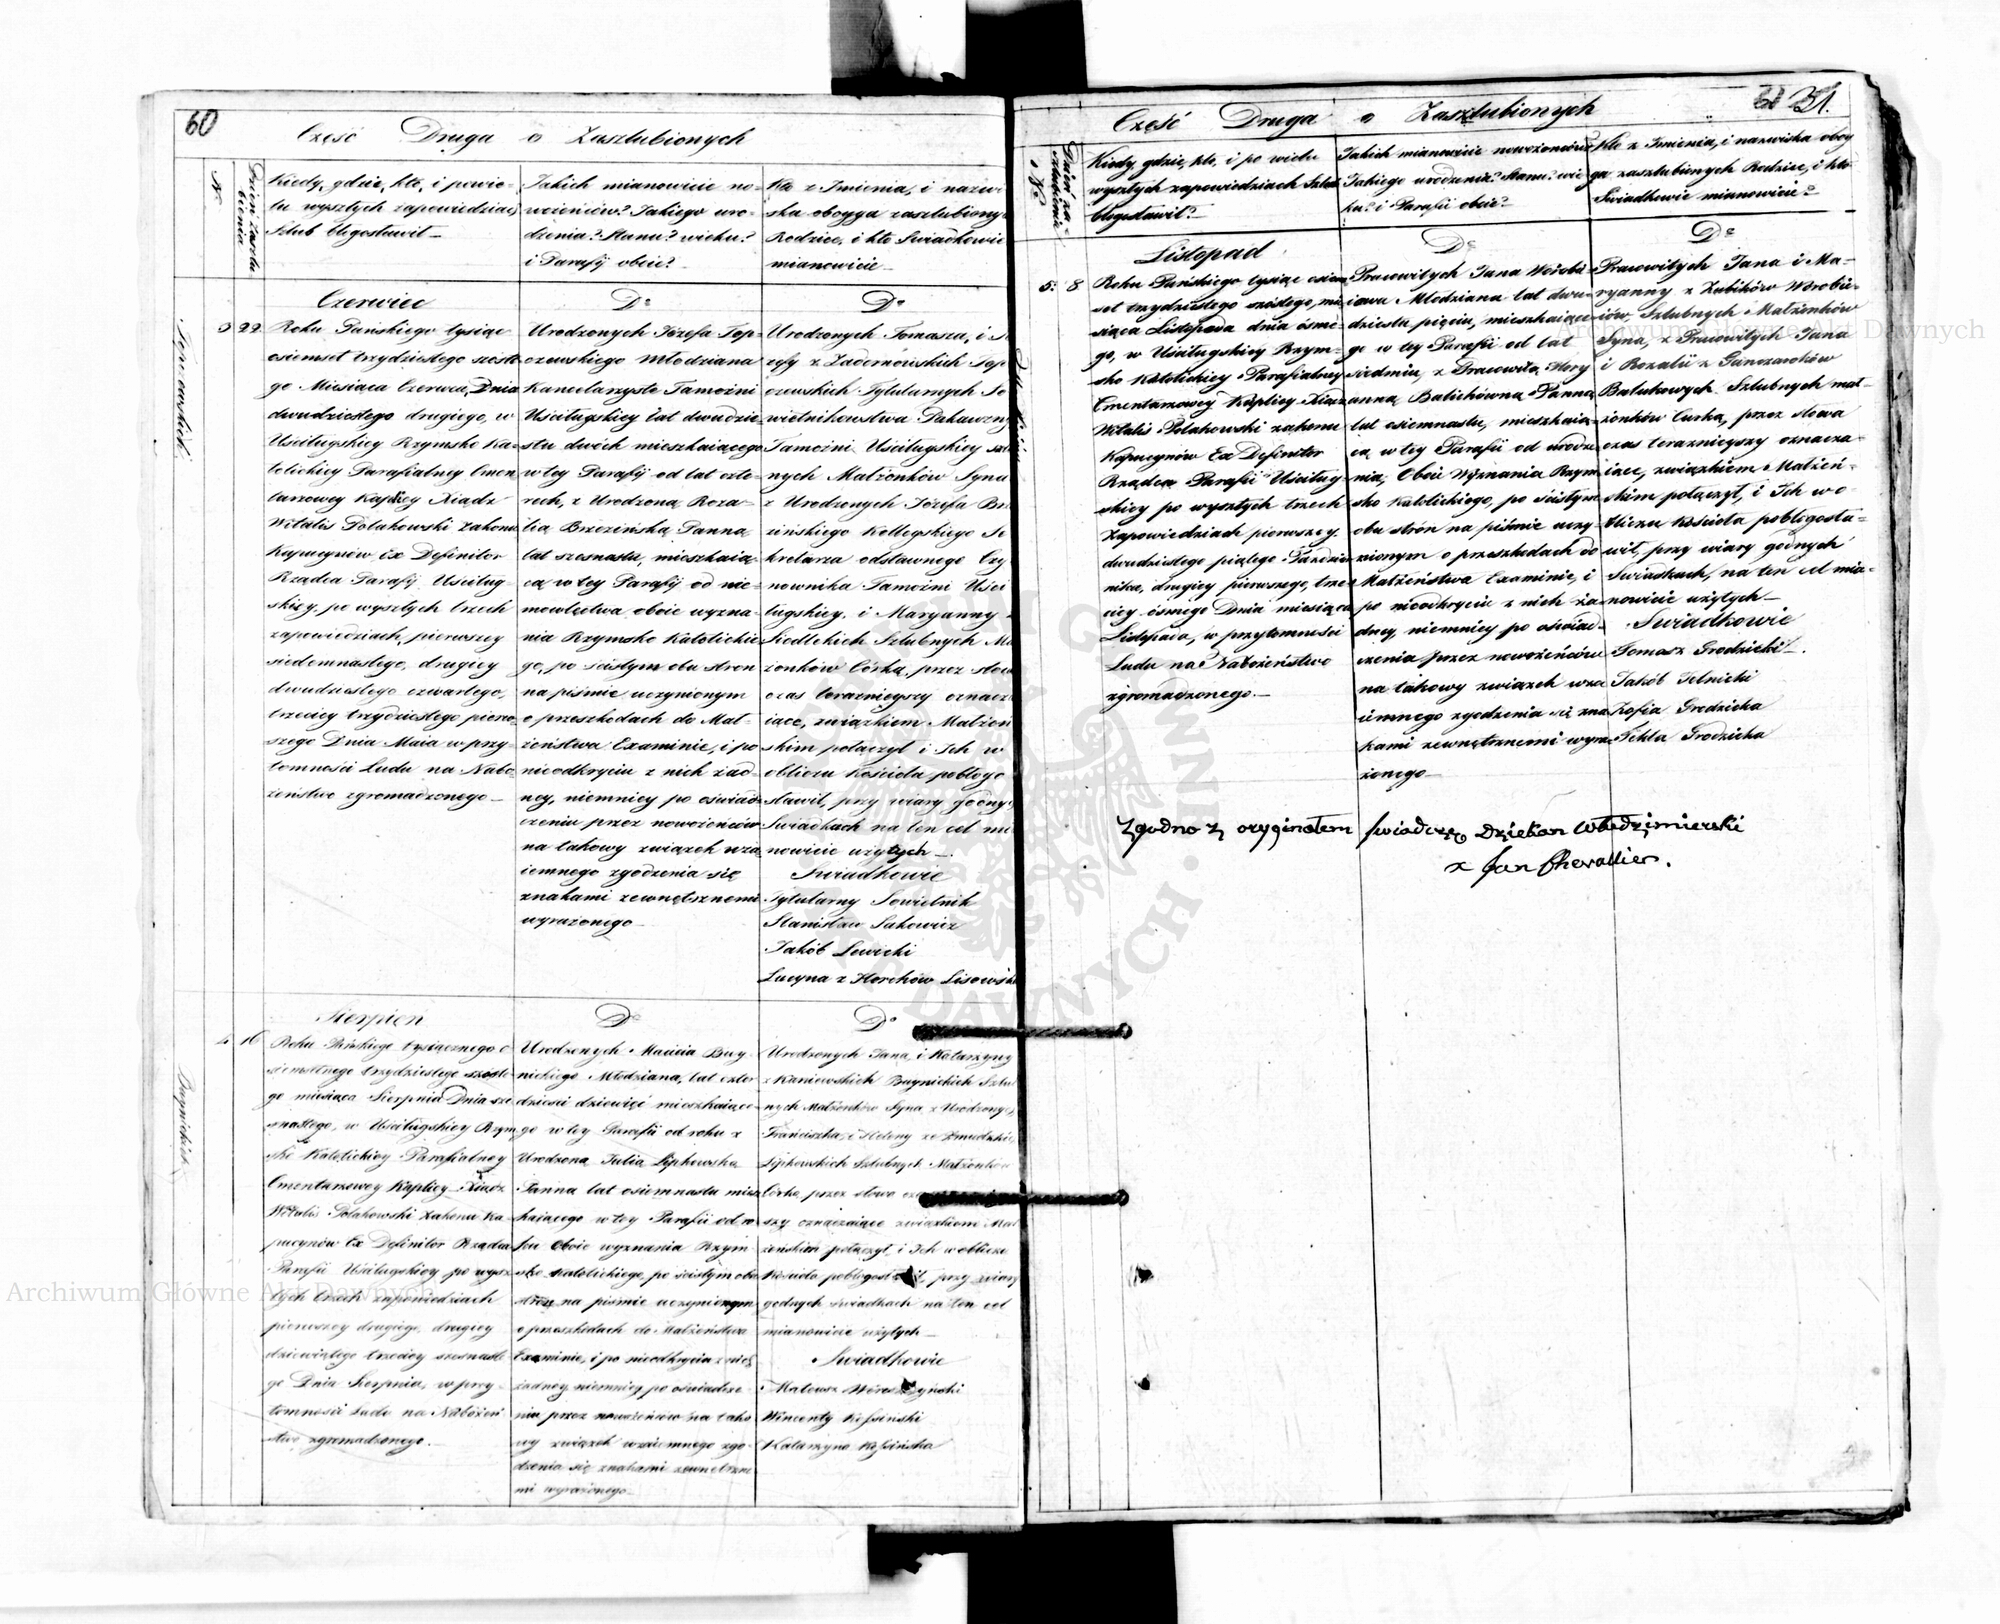 60
Część Druga o Zaszlubionych
No
Dzień zaszlu
bienia
Kiedy, gdzie, kto, i po wie-
lu wyszłych zapowiedziach
Szlub błogosławił
Jakich mianowicie no-
wożeńców? Jakiego uro-
dzenia? Stanu? wieku?
i Parafij oboie?
Kto z Imienia, i nazwi
ska oboyga zaszlubiony
Rodzice, i kto Swiadkowie
mianowicie
Czerwiec
3 22
Roku Pańskiego tysiąc
osiemset trzydziestego szóste
go Miesiąca Czerwca, Dnia
dwudziestego drugiego, w
Uściługskiey Rzymsko Ka-
tolickiey Parafialney Cmen
tarzowey Kaplicy Xiądz
Witalis Polakowski Zakonu
Kapucynów Ex Definitor
Rządca Parafij Uściług-
skiey, po wyszłych trzech
zapowiedziach, pierwszey
siedemnastego, drugiey
dwudziestego czwartego,
trzeciey trzydziestego pierw
szego Dnia Maia w przy-
tomności Ludu na Nabo
żeństwo zgromadzonego
Do
Urodzonych Józefa Top-
czewskiego Młodziana
Kancelarzystę Tamożni
Uściługskiey lat dwudzie
stu dwóch mieszkaiącego
w tey Parafij od lat czte-
rech, z Urodzoną Roza-
lią Brzezińską Panną
lat szesnastu, mieszkaią
cą w tey Parafij od nie-
mowlęctwa oboie wyzna-
nia Rzymsko Katolickie
go, po scisłym obu stron
na piśmie uczynionym
o przeszkodach do Mał-
żeństwa Examinie, i po
nieodkryciu z nich żad-
ney, niemniey po oświad-
czeniu przez nowożeńców
na takowy związek wza
iemnego zgodzenia się
znakami zewnętrznemi
wyrażonego
Do
Urodzonych Tomasza, i
zefy z Zadernowskich Top
czewskich Tytularnych So
wietnikowstwa Pakawzny
Tamożni Uściługskiey szlu
nych Małżonków Syna
z Urodzonych Józefa Brze
zińskiego Kollegskiego Se
kretarza odstawnego Czy
nownika Tamożni Uści
ługskiey, i Maryanny z
Siedleckich Szlubnych Ma
żonków Córką, przez słowa
czas teraznieyszy oznacza
iące, związkiem Małżeń
skim połączył i Ich w
obliczu Kościoła pobłogo
sławił, przy wiary godny
Swiadkach na ten cel mia
nowicie użytych
Swiadkowie
Tytularny Sowietnik
Stanisław Sakowicz
Jakób Lewicki
Lucyna z Horchów Lisowska
Sierpień
4 16
Roku Pańskiego tysiącznego o
siemsetnego trzydziestego szóste
go miesiąca Sierpnia Dnia sze
snastego, w Uściługskiey Rzym
sko Katolickiey Parafialney
Cmentarzowey Kaplicy Xiądz
Witalis Polakowski Zakonu Ka-
pucynów Ex Definitor Rządca
Parafii Uściługskiey po wysz
łych trzech zapowiedziach
pierwszey drugiego, drugiey
dziewiątego trzeciey szesnaste
go Dnia Sierpnia, w przy-
tomności Ludu na Nabożeń
stwo zgromadzonego.
Do
Urodzonych Macieia Bug-
nickiego Młodziana, lat czter
dzieści dziewięć mieszkaiące-
go w tey Parafii od roku z
Urodzoną Julią Lipkowską
Panną lat osiemnastu miesz
kaiącego w tey Parafii od ro
ku Oboie wyznania Rzym
sko Katolickiego, po scisłym obu
stron na piśmie uczynionym
o przeszkodach do Małżeństwa
Examinie, i po nieodkryciu z nich
żadney niemniey po oświadcze
niu przez nowożeńców na tako
wy związek wzaiemnego zgo-
dzenia się znakami zewnętrzne
mi wyrażonego
Do
Urodzonych Jana i Katarzyny
z Kaniewskich Bugnickich Szlu
nych Małżonków Syna z Urodzonych
Franciszka, i Heleny ze Żmudzkich
Lipkowskich Szlubnych Małżonków
Córką, przez słowa
szy oznaczaiące związkiem Mał
żeńskim połączył, i Ich w obliczu
Kościoła pobłogosławił, przy wiary
godnych Swiadkach na ten cel
mianowicie użytych
Swiadkowie
Mateusz
Wincenty Kossiński
Katarzyna Kossińska
31.
Część Druga o Zaszlubionych
No
Kiedy, gdzie, kto, i po wielu
wyszłych zapowiedziach Szlub
błogosławił?
Jakich mianowicie nowożeńców?
Jakiego urodzenia? Stanu? wie
ku? i Parafii oboie?
Kto z Imienia, i nazwiska oboy
ga zaszlubionych Rodzice, i kto
Swiadkowie mianowicie?
Listopad
5. 8
Roku Pańskiego tysiąc osiem
set trzydziestego szóstego, mie
siąca Listopada dnia ósme-
go, w Uściługskiey Rzym-
sko Katolickiey Parafialney
Cmentarzowey Kaplicy Xiądz
Witalis Polakowski zakonu
Kapucynów Ex Definitor
Rządca Parafii Uściług
skiey po wyszłych trzech
Zapowiedziach pierwszey
dwudziestego piątego Paździer
nika, drugiey pierwszego, trze
ciey ósmego Dnia miesiąca
Listopada, w przytomności
Ludu na Nabożeństwo
zgromadzonego.
Do
Pracowitych Jana Wórobi
iowa Młodziana lat dwu-
dziestu pięciu, mieszkaiące
go w tey Parafii od lat
siedmiu, z Pracowitą Mary
anną Balichówną Panną
lat osiemnastu, mieszkaią-
cą w tey Parafii od urodze
nia, Oboie Wyznania Rzym
sko Katolickiego, po scisłym
obu stron na piśmie uczy-
nionym o przeszkodach do
Małżeństwa Examinie, i
po nieodkryciu z nich ża
dney, niemniey po oświad-
czenia przez nowożeńców
na takowy związek wza
iemnego zgodzenia się zna
kami zewnętrznemi wyra
żonego
Do
Pracowitych Jana i Ma-
ryanny z Zubików Wórobie-
iów, Szlubnych Małżonków
Syna, z Pracowitych Jana
i Rozalii z Ganczaruków
Balukowych Szlubnych mał-
żonków Curką, przez słowa
czas teraznieyszy oznacza-
iące, związkiem Małżeń-
skim połączył, i Ich w o-
bliczu Kościoła pobłogosła-
wił, przy wiary godnych
Swiadkach, na ten cel mia-
nowicie użytych
Swiadkowie
Tomasz Grodzicki
Jakób Telnicki
Zofia Grodzicka
Tekla Grodzicka
Zgodno z oryginałem świadczę Dziekan Włodzimierski
x Jan Chevallier.
Archiwum Główne Akt Dawnych
Archiwum Główne Akt Dawnych